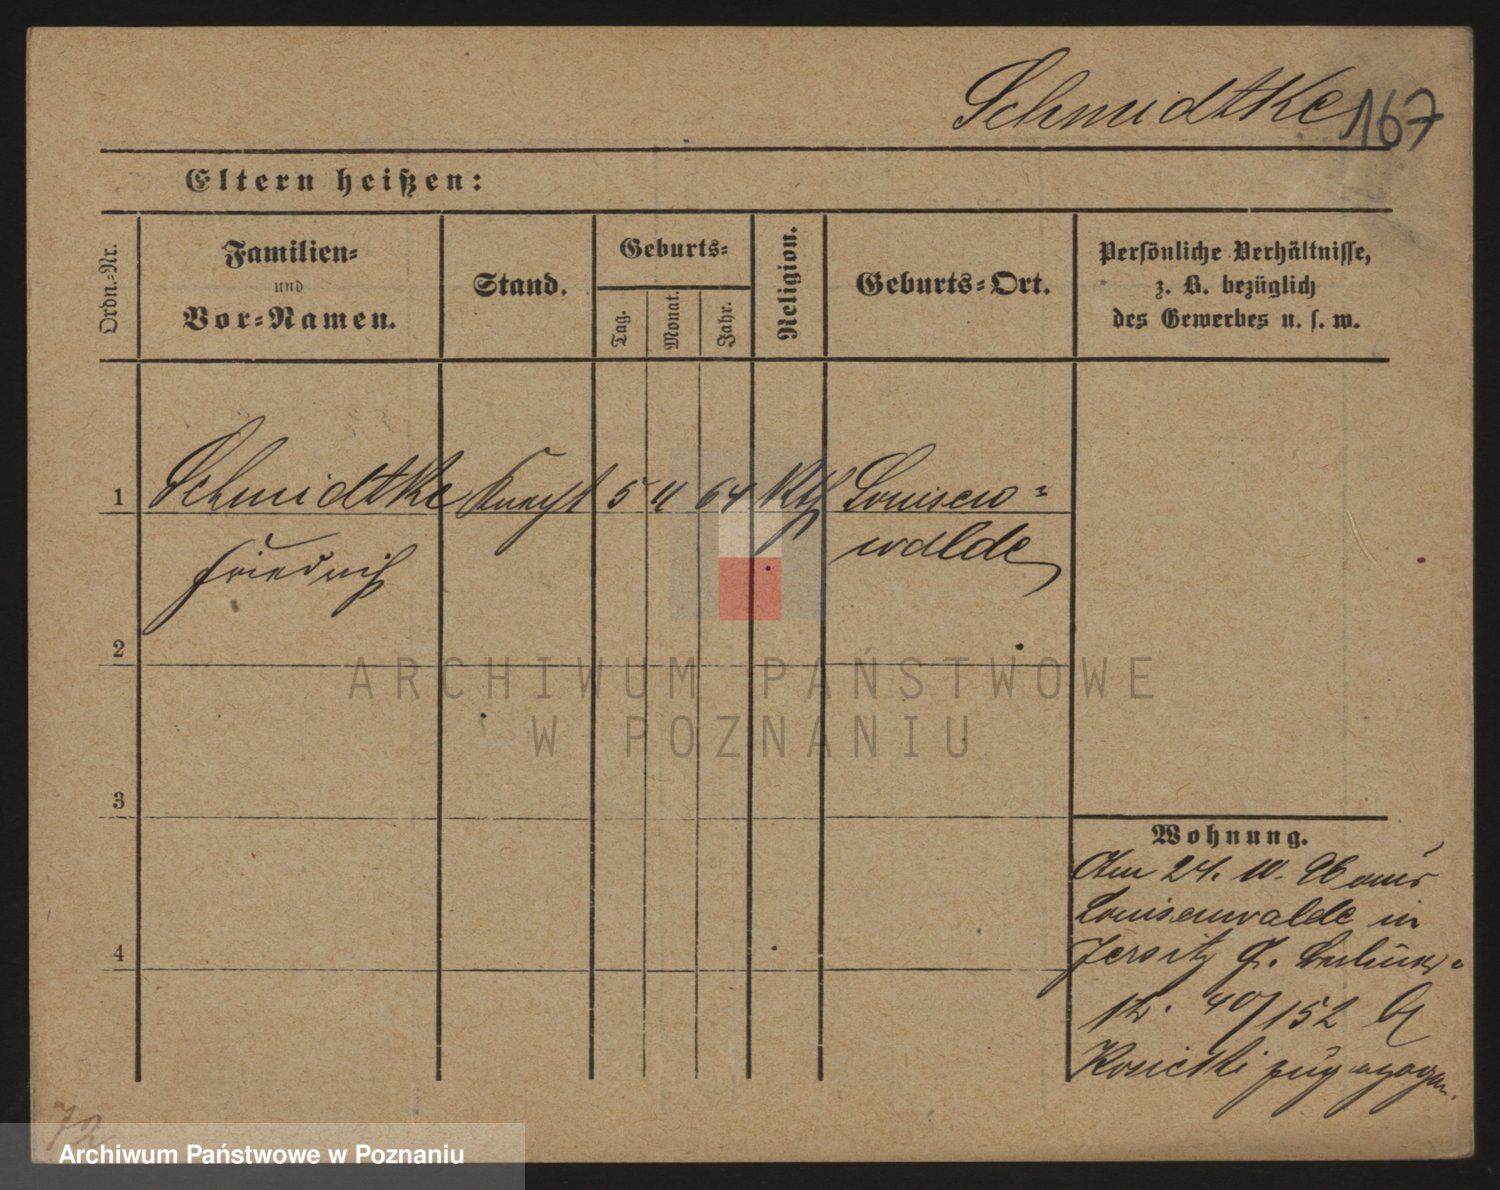 Schmidtke 167
Eltern heißen:
Ordn.-Nr.
Familien-
und
Vor-Namen.
Stand.
Geburts-
Tag.
Monat.
Jahr.
Religion.
Geburts-Ort.
Persönliche Verhältnisse,
z. B. bezüglich
des Gewerbes u. s. w.
1 Schmidtke Knecht 5 11 64 Kth Louisen-
Friedrich walde
2
3
4
Wohnung.
Am 24. 10. 96 aus
Louisenwalde in
Jersitz Gr. Berliner-
str. 40/152 b/
Kosicki zugezogen.
ARCHIWUM PAŃSTWOWE
W POZNANIU
72
Archiwum Państwowe w Poznaniu